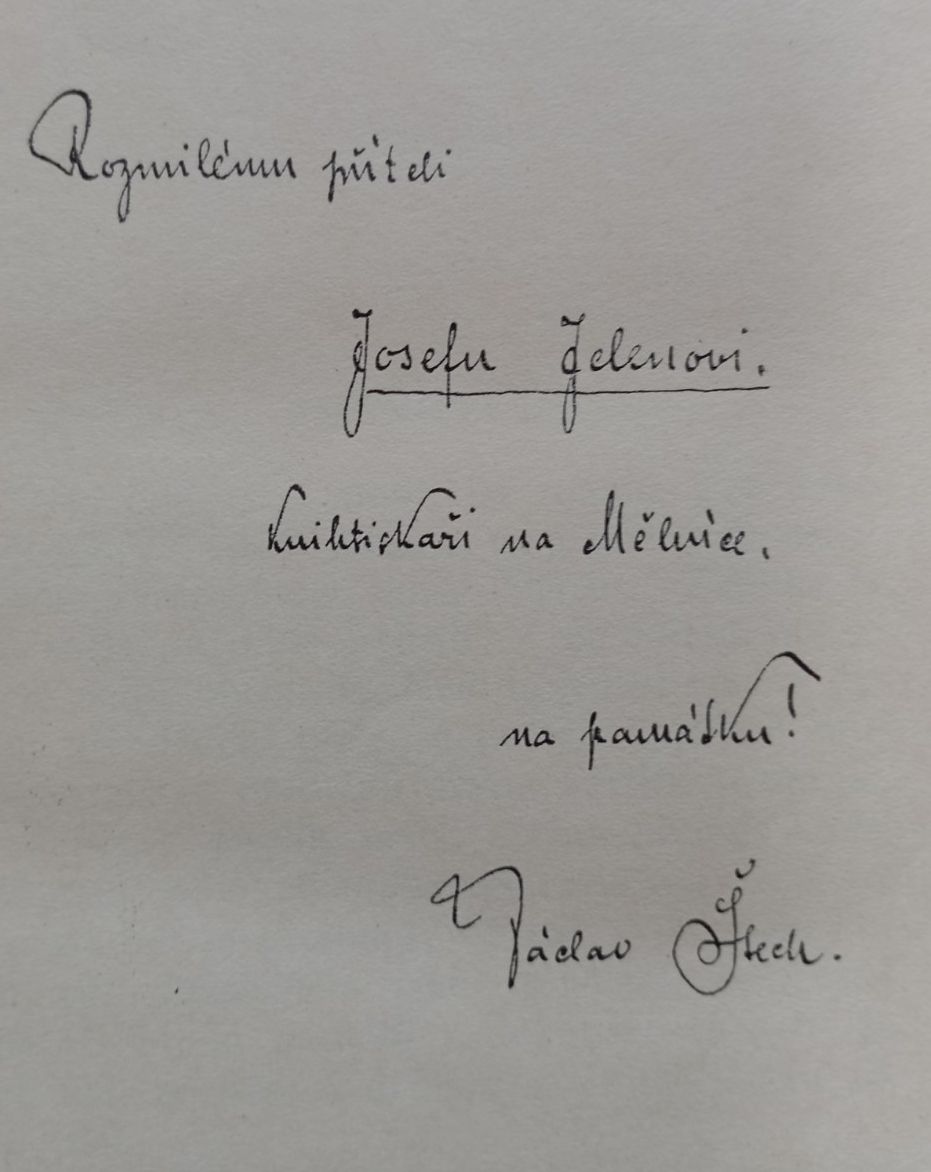 Rozmilému příteli
Josefu Jelenovi.
knihtiskaři na Mělníce,
na památku!
Václav Štech.